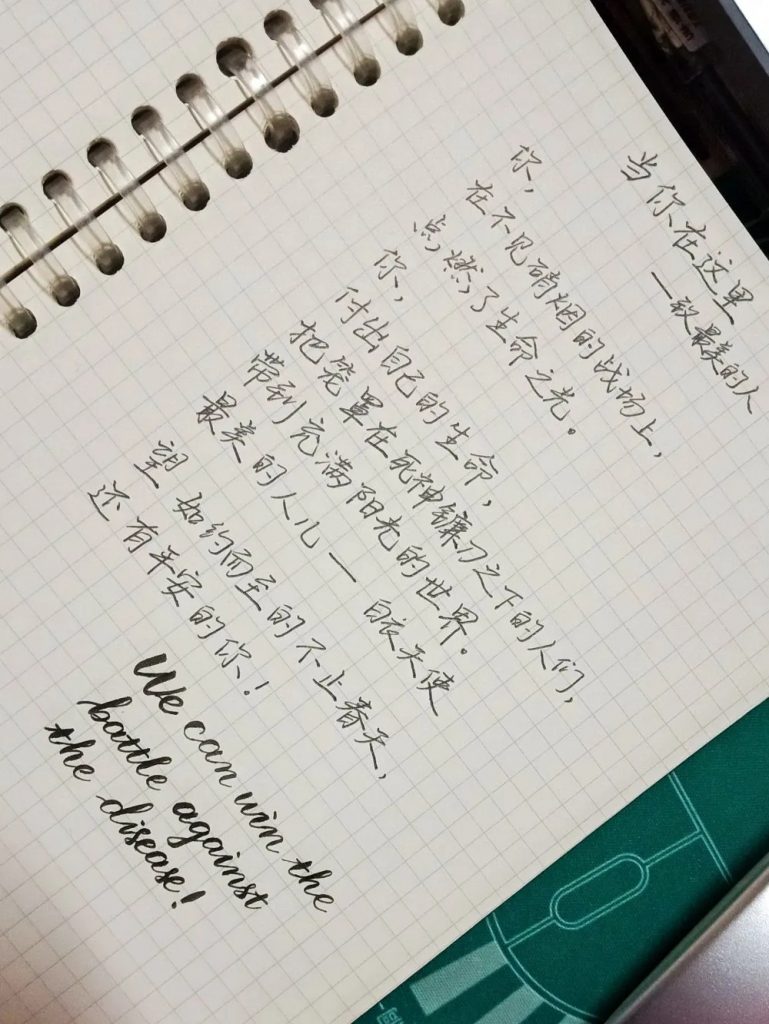 当你在这里
—致最美的人
你,
在不见硝烟的战场上,
点燃了生命之光。
你,
付出自己的生命,
把笼罩在死神镰刀之下的人们,
带到充满阳光的世界。
最美的人儿—白衣天使
望 如约而至的不止春天,
还有平安的你!
We can win the
battle against
the disease!